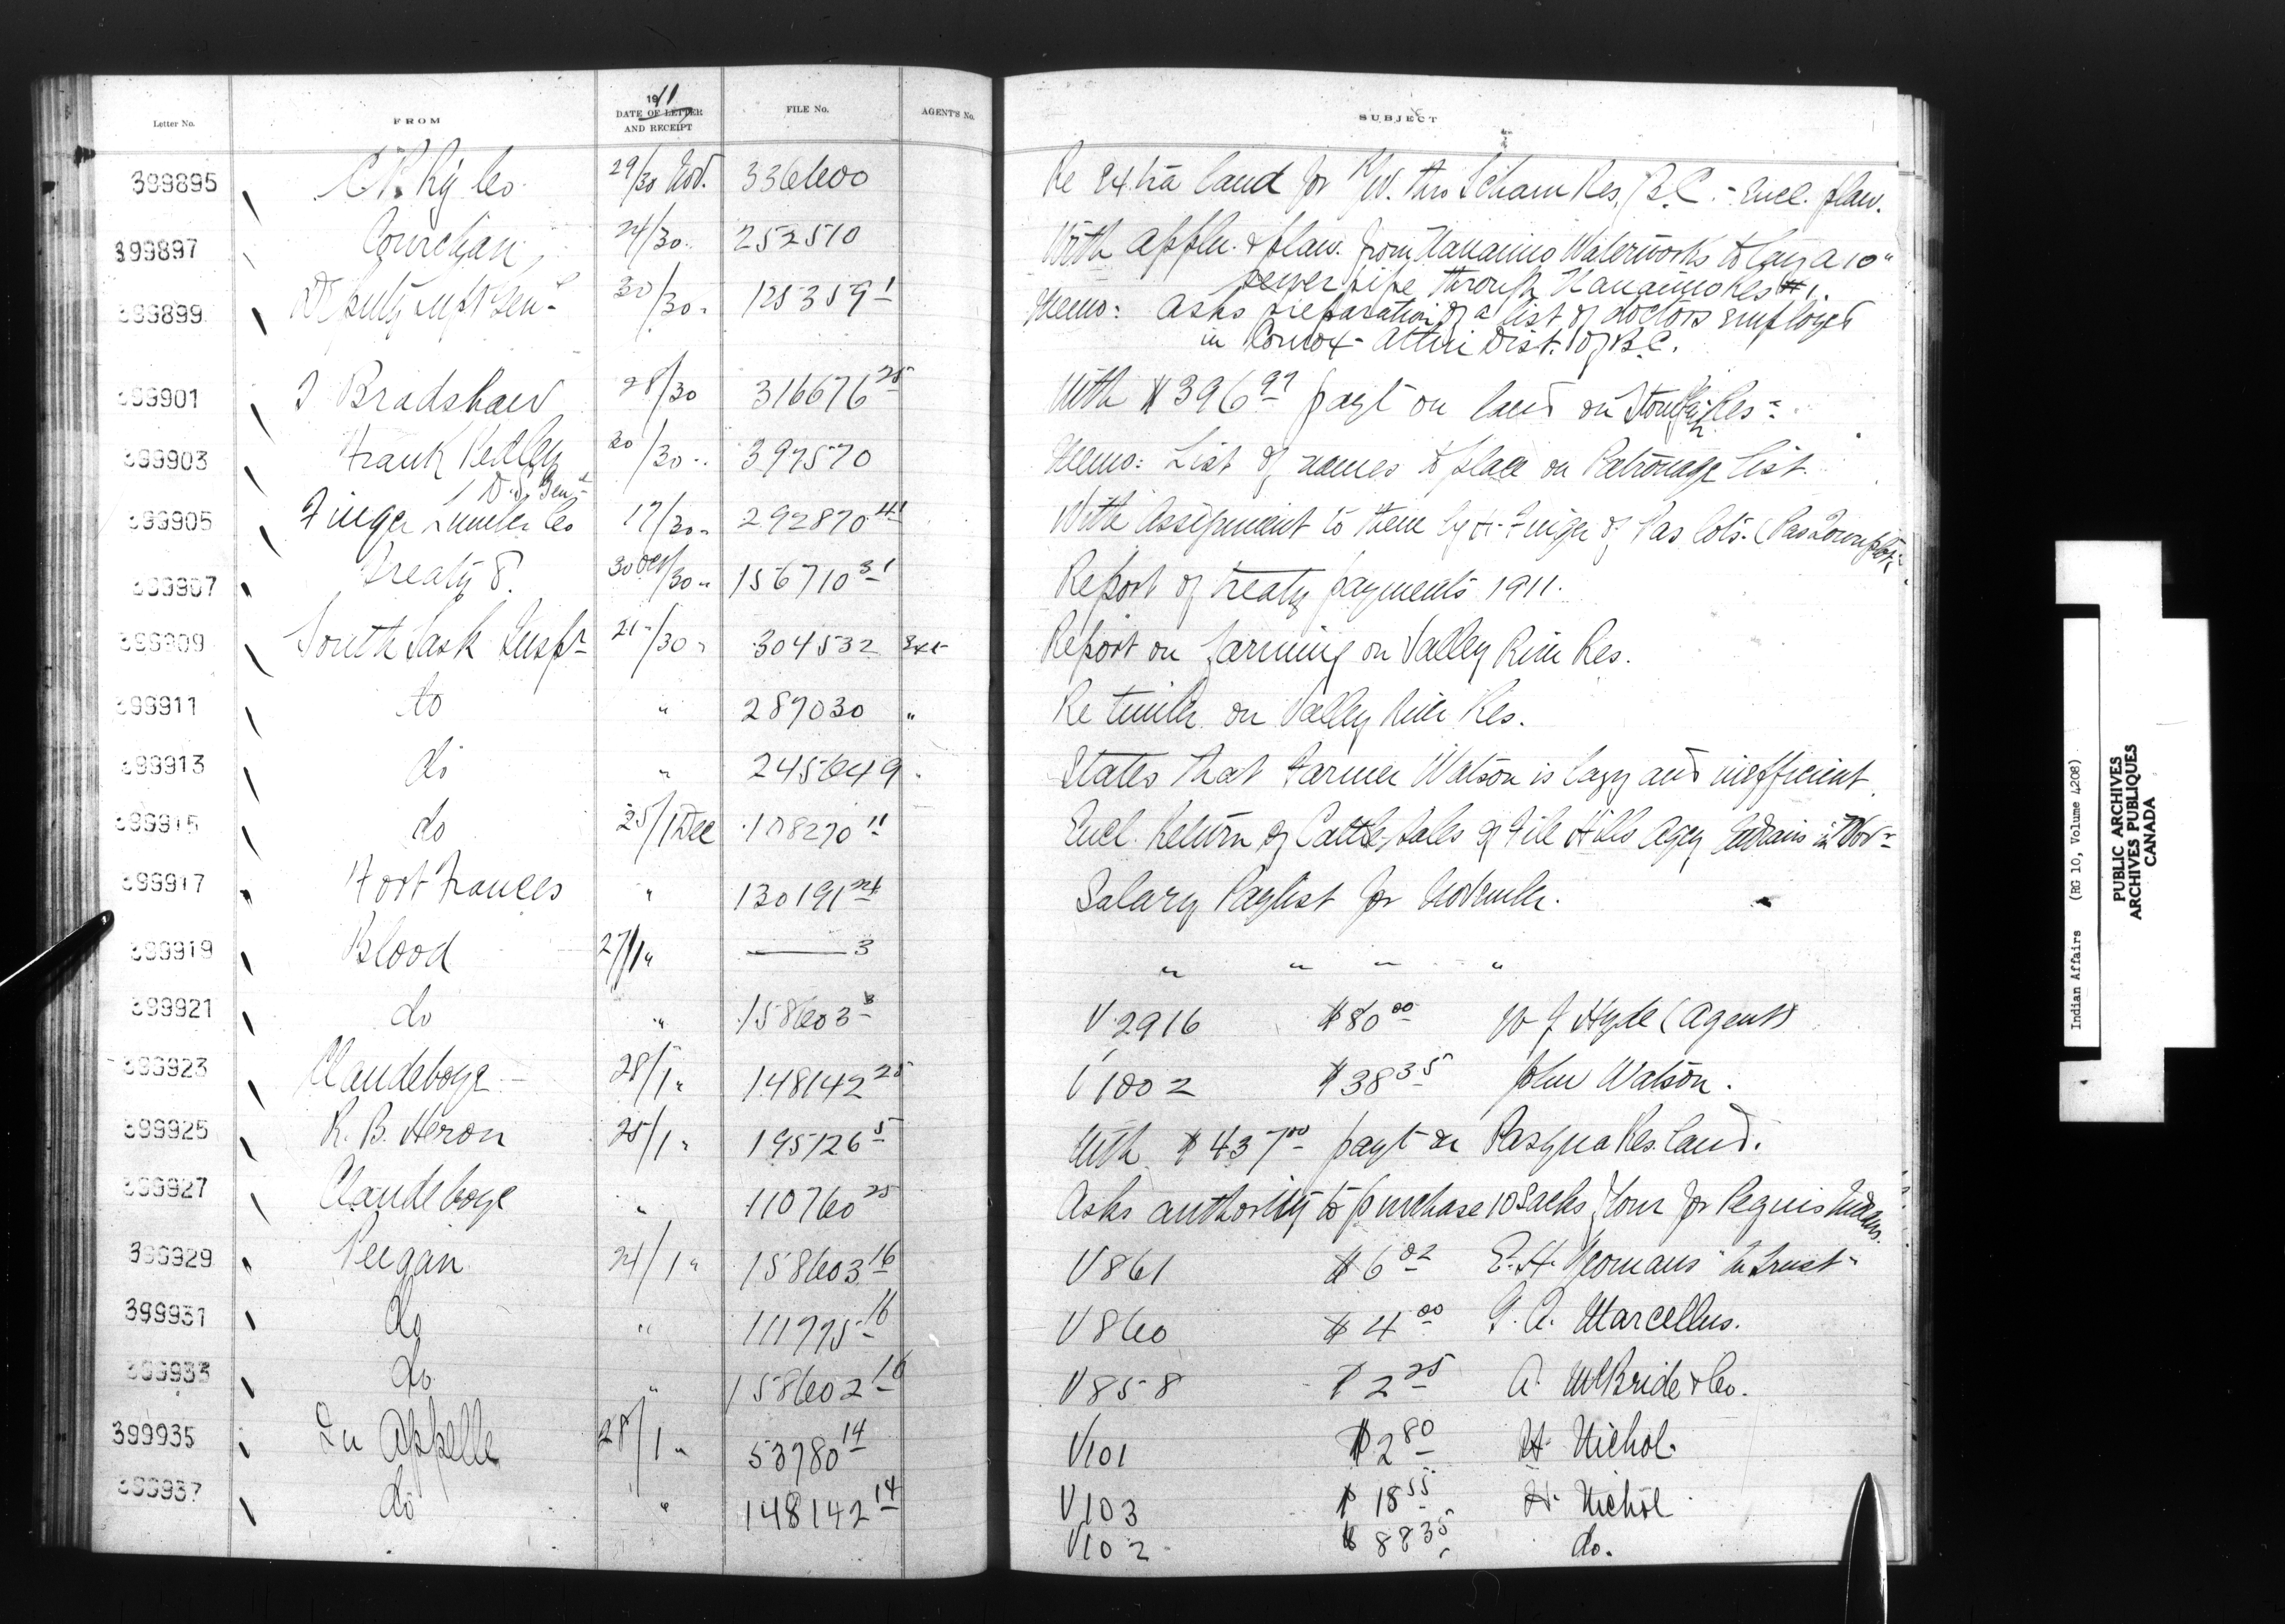 Letter No. FROM 1911 DATE OF LETTER AND RECEIPT FILE No. AGENT'S No. SUBJECT
399895 C P Ry Co 29/30 Nov. 336600 Re Extra land for R/W. thro Res, B.C. - Encl. plan.
399897 Cowichan 24/30 252510 With appln. & plan. from Nanaimo Waterworks to lay a 10"
sewer pipe through Nanaimo Res #1.
399899 Deputy Supt Genl 30/30 125359 1 Memo: asks preparation of a list of doctors employed
in Comox-Atlin Dist. of B.C.
399901 J Bradshaw 28/30 316676 25 With $396 97 payt on land on Res
399903 Frank Pedley D.S. Genl 30/30 397570 Memo: List of names to place on Patronage list.
399905 Finger Lumber Co 17/30 292870 41 With Assignment to them by H. Finger of Pas lots. (Pas Townplot)
399907 Treaty 8. 30 Oct/30 156710 31 Report of treaty payments 1911.
399909 South Sask Inspr 21/30 304532 Report on farming on Valley River Res.
399911 do " 287030 " Re timber on Valley River Res.
399913 do " 245649 States that Farmer Watson is lazy and inefficient.
399915 do 25/1 Dec 108270 11 Encl. Return of Cattle Sales of File Hills Agcy Indians in Nov
399917 Fort Frances " 130191 24 Salary Paylist for November.
399919 Blood 27/1 " ——— 3 " " " "
399921 do " 158603 3 V 2916 $80 00 W J Hyde (Agent)
399923 Clandeboye 28/1 " 148142 25 V 1002 $38 35 John Watson.
399925 R. B. Heron 25/1 " 195126 5 With $437 00 payt on Pasqua Res. land.
399927 Clandeboye " 110760 25 Asks authority to purchase 10 Sacks flour for Peguis Indians.
399929 Peigan 24/1 " 158603 16 V 861 $6 02 E. H. Yeomans "In Trust"
399931 do " 111775 16 V 860 $4 00 G. A. Marcellus.
399933 do " 158602 16 V 858 $2 25 A. McBride & Co.
399935 Qu Appelle 28/1 " 53780 14 V 101 $2 80 H. Nichol.
399937 do " 148142 14 V 103 $18 55 H. Nichol
V 102 $88 35 do.
Indian Affairs (RG 10, Volume 4208)
PUBLIC ARCHIVES
ARCHIVES PUBLIQUES
CANADA